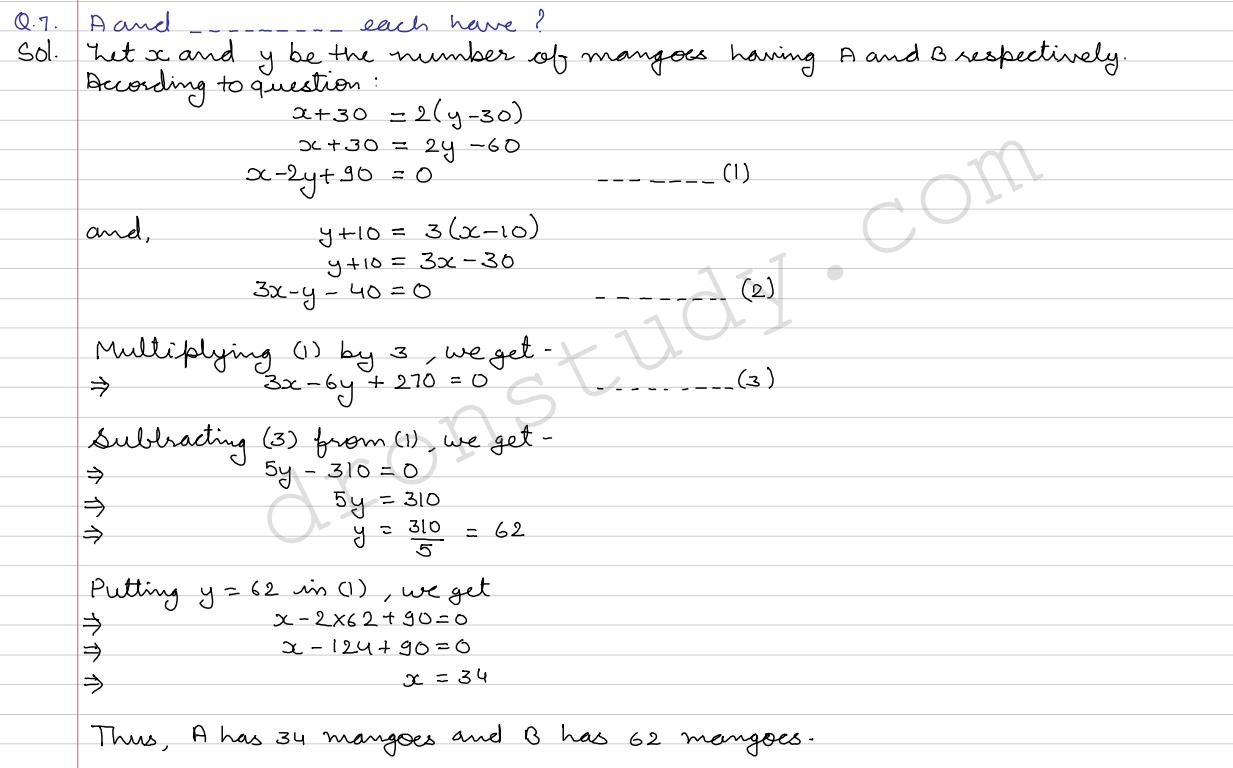 Q.7. A and _ _ _ _ _ _ _ _ _ each have ?
Sol. Let x and y be the number of mangoes having A and B respectively.
According to question :
x+30 = 2(y-30)
x+30 = 2y-60
x-2y+90 = 0 _ _ _ _ _ _ _ (1)
and, y+10 = 3(x-10)
y+10 = 3x-30
3x-y-40=0 _ _ _ _ _ _ _ _ (2)
Multiplying (1) by 3, we get -
⇒ 3x-6y+270=0 _ _ _ _ _ _ _ _ (3)
Subtracting (3) from (1), we get -
⇒ 5y-310=0
⇒ 5y=310
⇒ y = 310/5 = 62
Putting y=62 in (1), we get
⇒ x-2×62+90=0
⇒ x-124+90=0
⇒ x = 34
Thus, A has 34 mangoes and B has 62 mangoes.
dronstudy.com